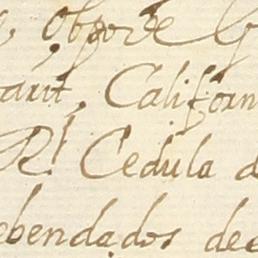 Obpõde
arit, Californ
Rl Cedula d
ebendados de